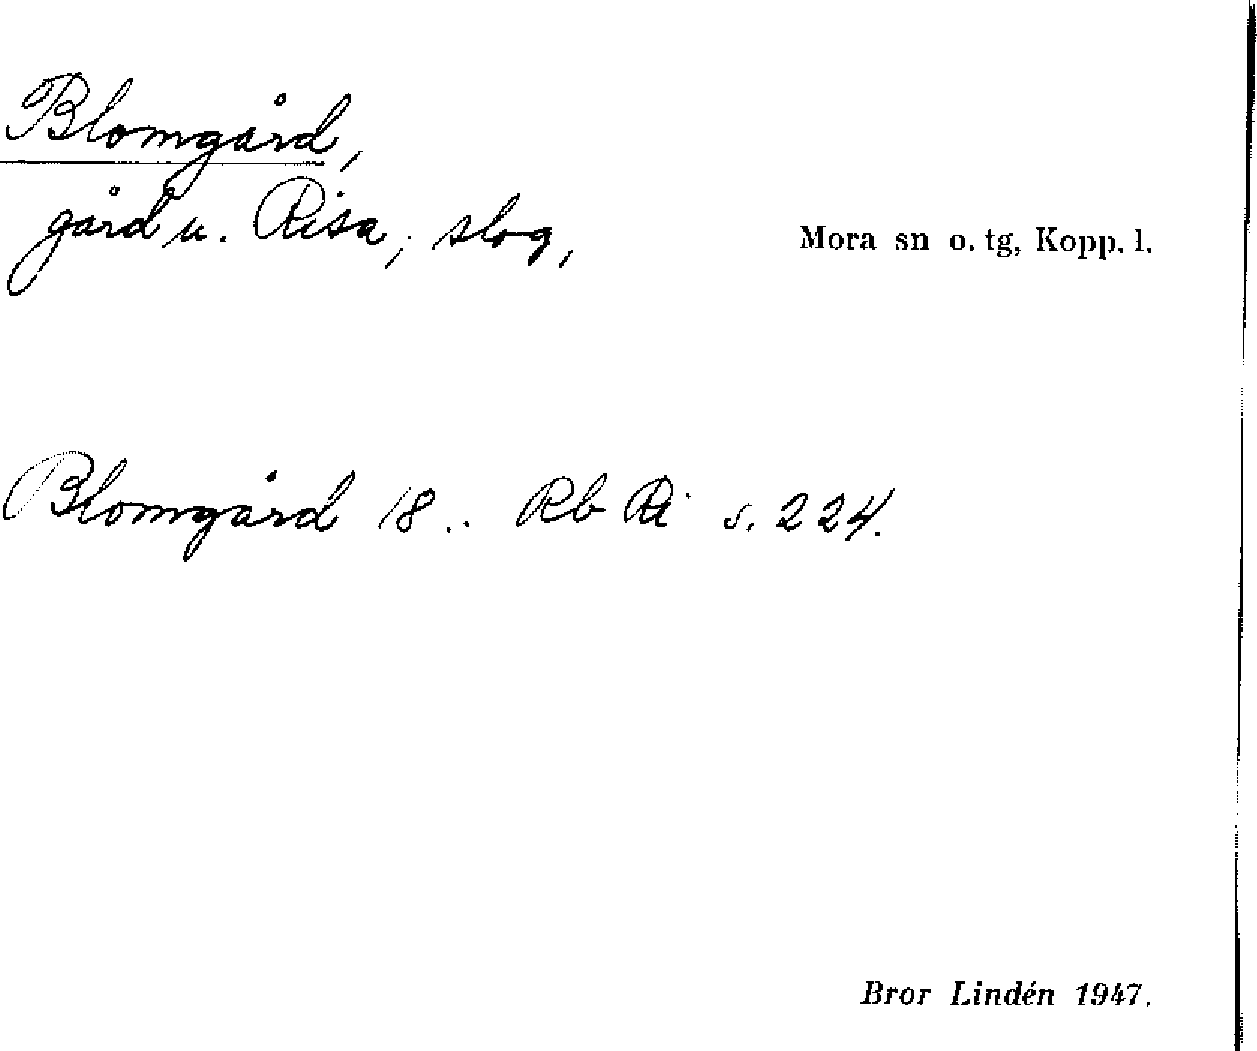 Blomgård,
gård u. Risa; slog, Mora sn o. tg, Kopp. l.
Blomgård 18.. Rb Ri s. 224.
Bror Lindén 1947.